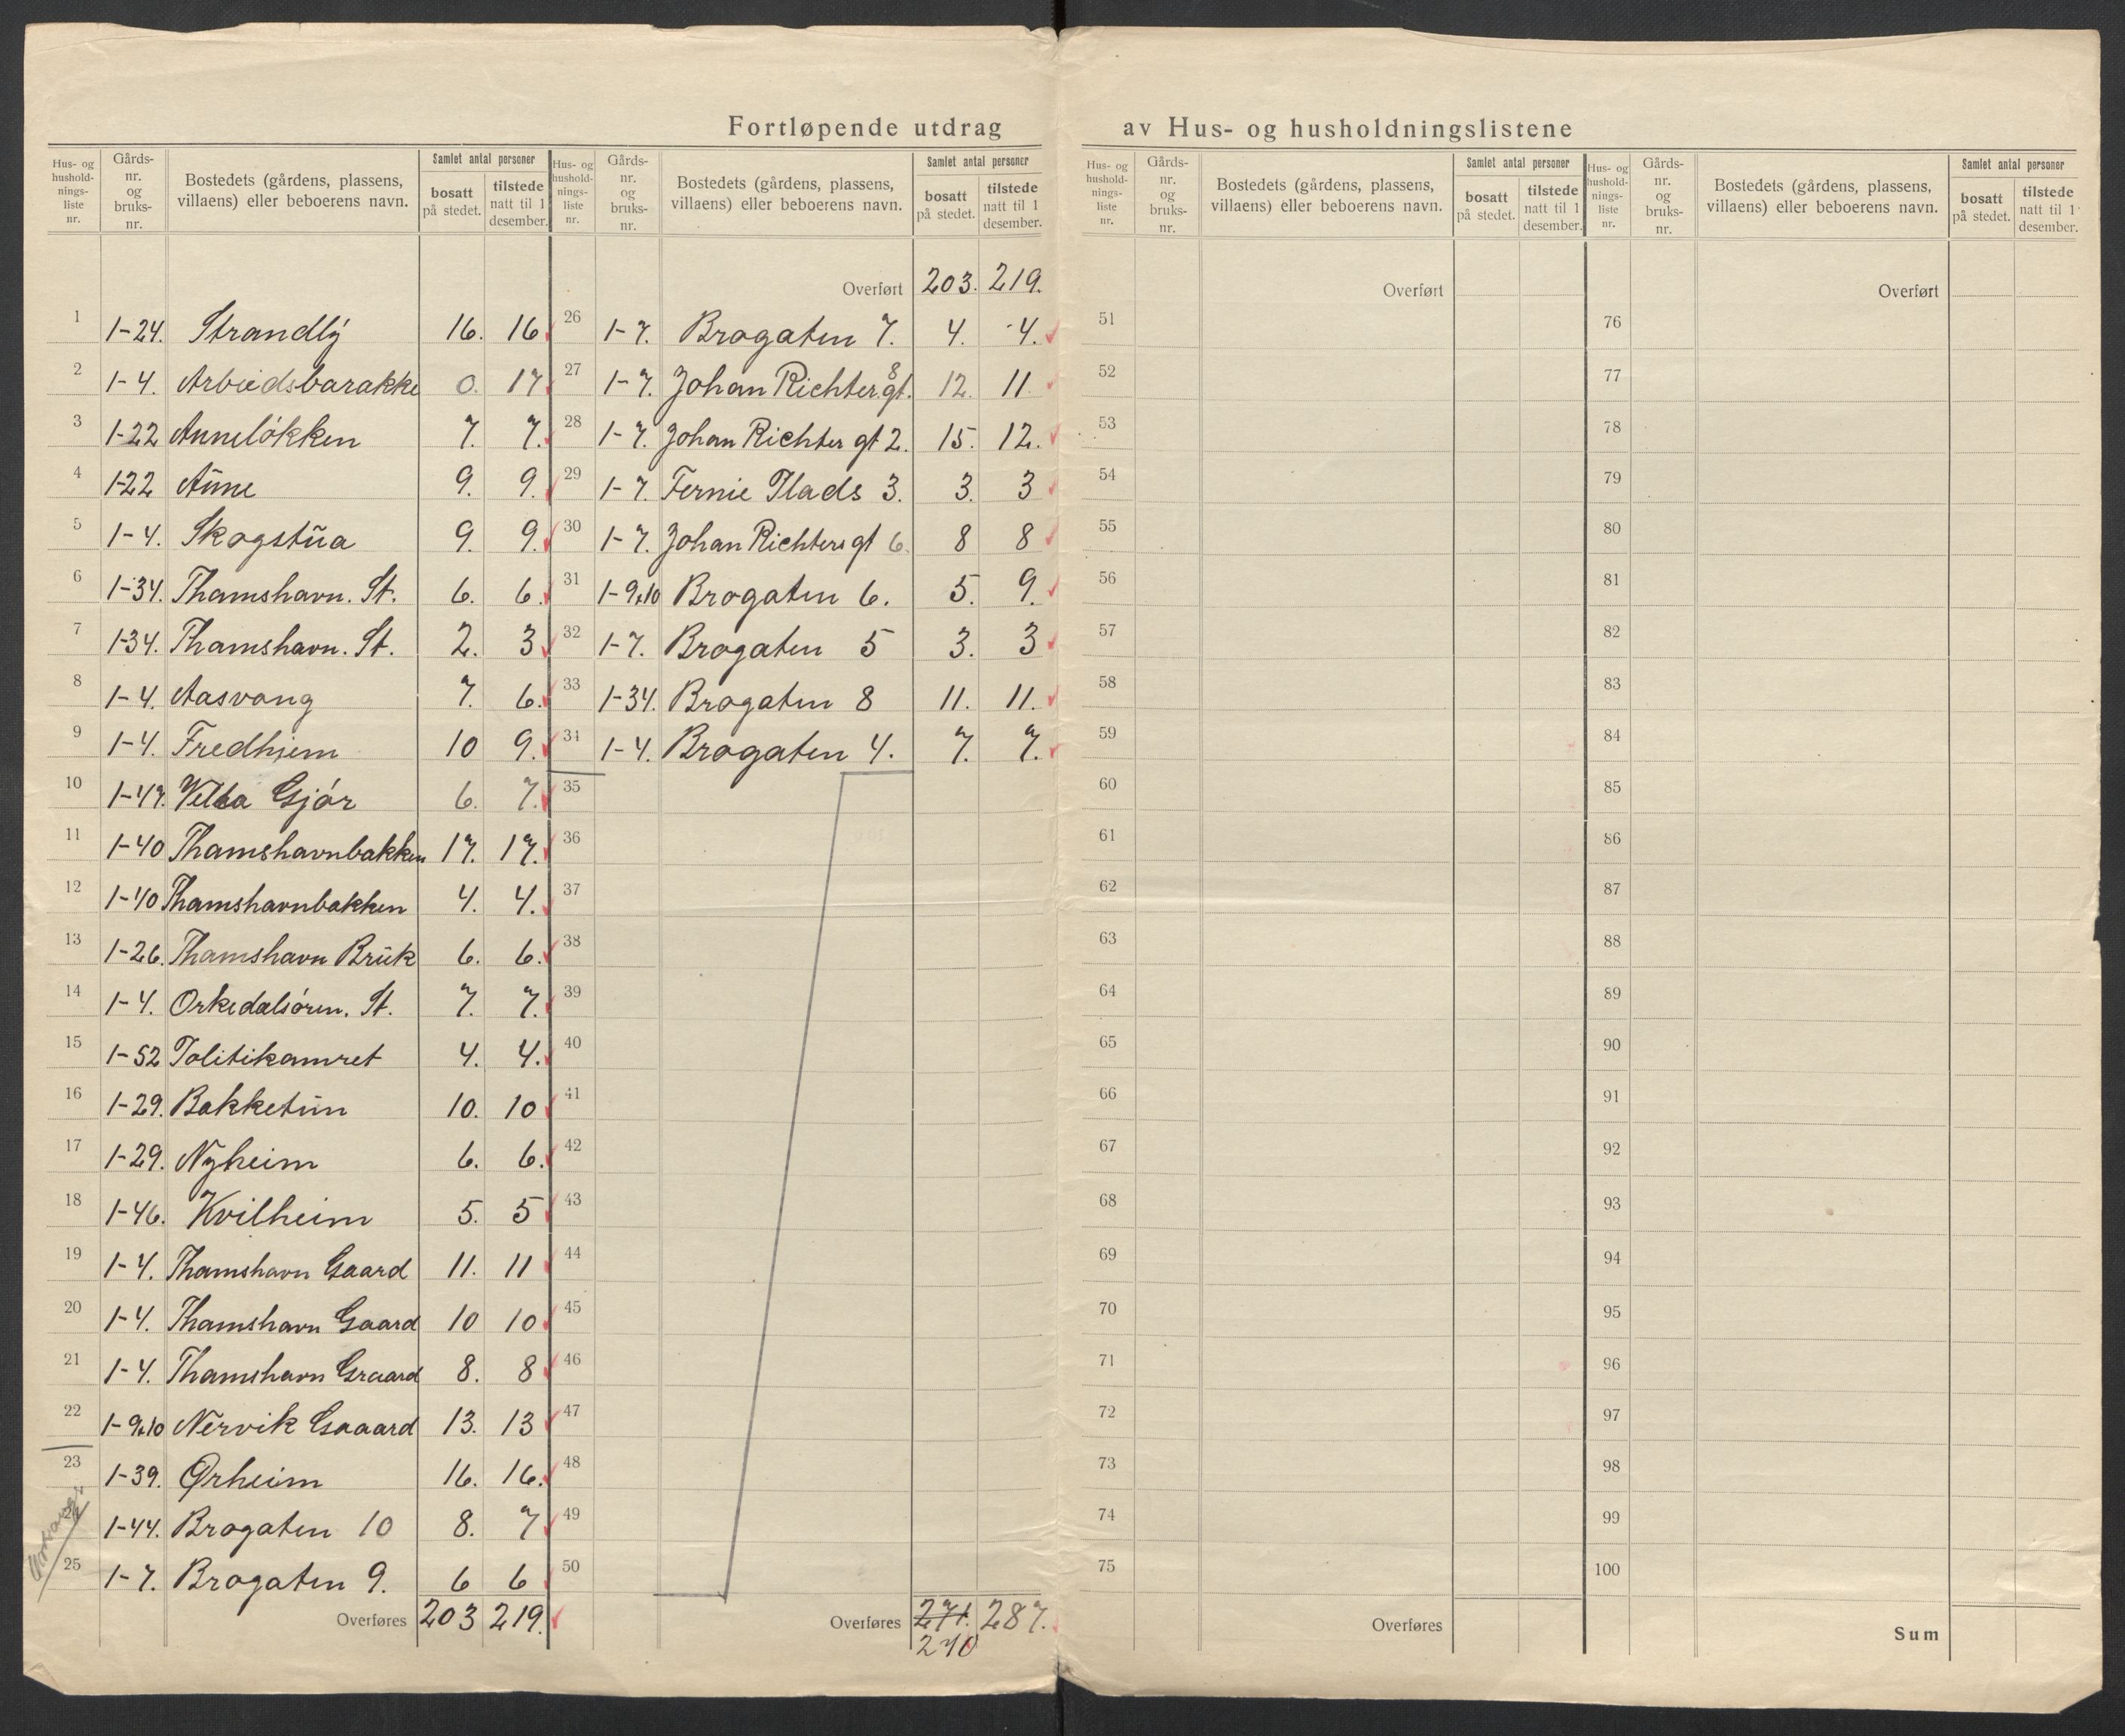 Fortløpende utdrag av Hus- og husholdningslistene
Hus- og hushold- nings- liste nr.
Gårds- nr. og bruks- nr.
Bostedets (gårdens, plassens, villaens) eller beboerens navn.
Samlet antal personer
bosatt på stedet.
tilstede natt til 1 desember.
1 1-24. Strandlŷ 16. 16
2 1-4. Arbiedsbarakke 0. 17
3 1-22 Anneløkken 7. 7.
4 1-22 Aŭne 9. 9.
5 1-4. Skogstŭa 9. 9.
6 1-34. Thamshavn. St. 6. 6.
7 1-34. Thamshavn. St. 2. 3
8 1-4. Aasvang 7. 6.
9 1-4. Fredhjem 10 9.
10 1-47. Vetla Gjør 6. 7.
11 1-40 Thamshavnbakken 17. 17.
12 1-40 Thamshavnbakken 4. 4.
13 1-26. Thamshavn Brŭk 6. 6.
14 1-4. Orkedalsøren. St. 7. 7.
15 1-52 Politikamret 4. 4.
16 1-29. Bakketŭn 10. 10
17 1-29. Nyheim 6. 6.
18 1-46. Kvilheim 5. 5
19 1-4. Thamshavn Gaard 11. 11
20 1-4. Thamshavn Gaard 10 10
21 1-4. Thamshavn Graard 8. 8
22 1-9+10 Nervik Gaaard 13. 13
23 1-39. Ørheim 16. 16.
1-44. Brogaten 10 8. 7
25 1-7. Brogaten 9. 6 6
Overføres 203 219.
Hus- og hushold- nings- liste nr.
Gårds- nr. og bruks- nr.
Bostedets (gårdens, plassens, villaens) eller beboerens navn.
Samlet antal personer
bosatt på stedet.
tilstede natt til 1 desember.
Overført 203. 219.
26 1-7. Brogaten 7. 4. 4.
27 1-7. Johan Richter.gt. 8 12. 11
28 1-7. Johan Richter gt 2. 15. 12.
29 1-7. Fernie Plads 3. 3. 3
30 1-7. Johan Richters gt 6. 8 8
31 1-9+10 Brogaten 6. 5. 9.
32 1-7. Brogaten 5 3. 3
33 1-34. Brogaten 8 11. 11.
34 1-4. Brogaten 4. 7. 7.
35
36
37
38
39
40
41
42
43
44
45
46
47
48
49
50
Overføres 271. 287.
270
Hus- og hushold- nings- liste nr.
Gårds- nr. og bruks- nr.
Bostedets (gårdens, plassens, villaens) eller beboerens navn.
Samlet antal personer
bosatt på stedet.
tilstede natt til 1 desember.
Overført
51
52
53
54
55
56
57
58
59
60
61
62
63
64
65
66
67
68
69
70
71
72
73
74
75
Overføres
Hus- og hushold- nings- liste nr.
Gårds- nr. og bruks- nr.
Bostedets (gårdens, plassens, villaens) eller beboerens navn.
Samlet antal personer
bosatt på stedet.
tilstede natt til 1 desember.
Overført
76
77
78
79
80
81
82
83
84
85
86
87
88
89
90
91
92
93
94
95
96
97
98
99
100
Sum